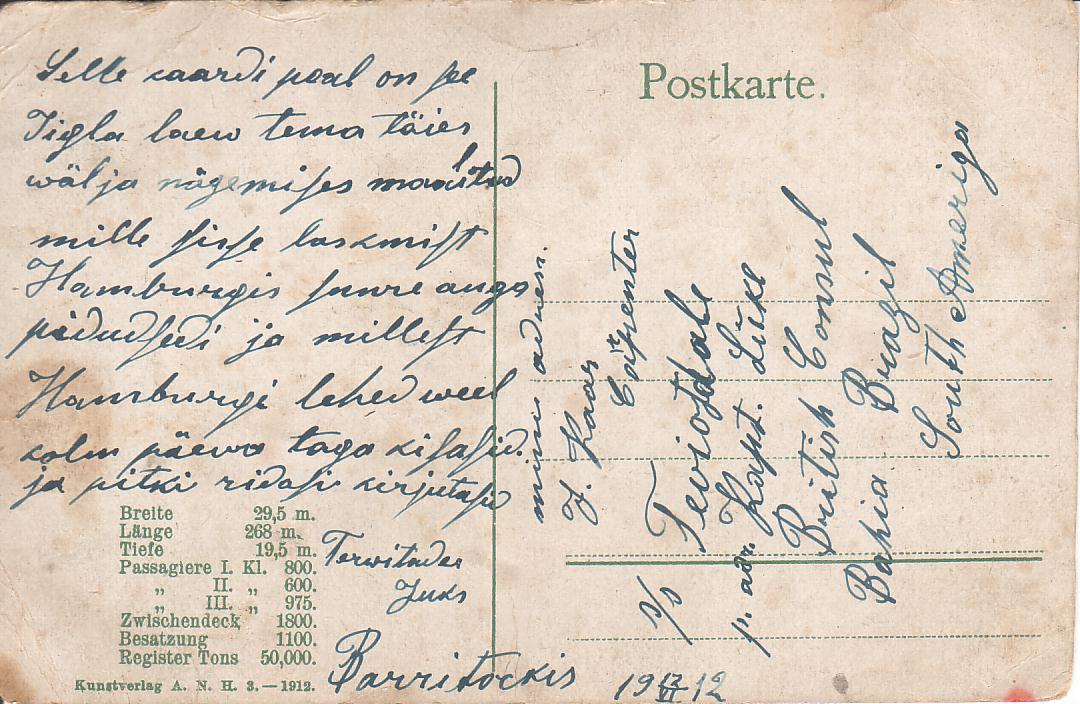 Postkarte.
Selle kaardi peal on see
Iigla laew tema täies
wälja nägemises maalitud
mille sisse laskmist
Hamburgis suure auga
pidudsedi ja millest
Hamburgi lehed weel
kolm päewa taga kisasid.
ja pitki ridasi kirjutasid
Terwitades
Juks
Barritockis 19 12/VI 12
minu adress.
J. Kaas
Carpenter
s/s Teviotdale
p. adr. Kapt. Lüke
British Consul
Bahia Brazil
South Ameriga
Breite 29,5 m.
Länge 268 m.
Tiefe 19,5 m.
Passagiere I. Kl. 800.
„ II. „ 600.
„ III. „ 975.
Zwischendeck 1800.
Besatzung 1100.
Register Tons 50,000.
Kunstverlag A. N. H. 3.—1912.